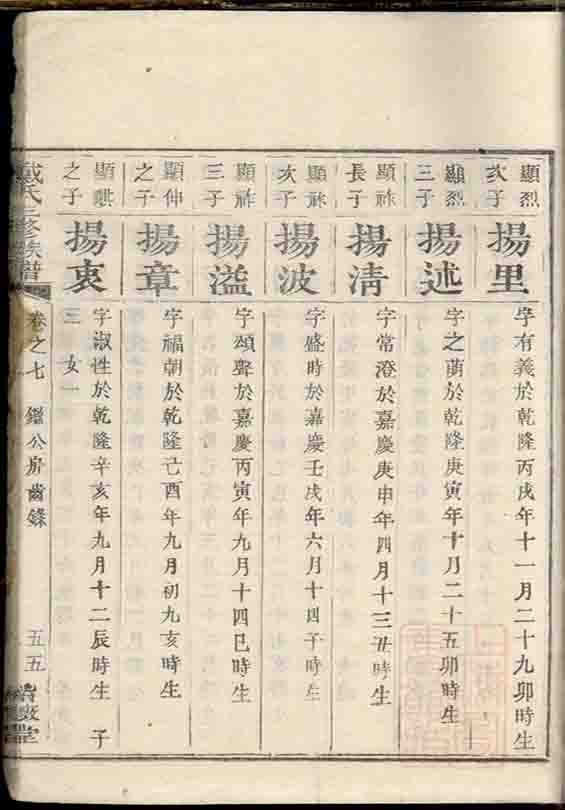 顯烈
次子
揚里
字有義於乾隆丙戌年十一月二十九卯時生
顯烈
三子
揚述
字之蘭於乾隆庚寅年十月二十五卯時生
顯祚
長子
揚清
字常澄於嘉慶庚申年四月十三丑時生
顯祚
次子
揚波
字盛時於嘉慶壬戌年六月十四子時生
顯祚
三子
揚溢
字頌聲於嘉慶丙寅年九月十四巳時生
顯仲
之子
揚章
字福朝於乾隆己酉年九月初九亥時生
之子
揚衷
字淑性於乾隆辛亥年九月十二辰時生 子
三 女一
戴氏三修族譜
卷之七 鑑公房齒錄
五五
堂